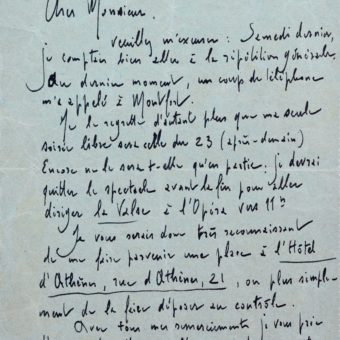 Cher Monsieur.
Veuillez m'excuser : Samedi dernier,
je comptais bien aller à la répétition générale.
Au dernier moment, un coup de téléphone
m'a appelé à Montfort.
Je le regrette d'autant plus que ma seule
soirée libre sera celle du 23 (après-demain)
Encore ne le sera-t-elle qu'en partie : je devrai
quitter le spectacle avant la fin pour aller
diriger la Valse à l'Opéra vers 11h
Je vous serais donc très reconnaissant
de me faire parvenir une place à l'Hôtel
d'Athènes, rue d'Athènes, 21, ou plus simple-
ment de la faire déposer au contrôle.
Avec tous mes remerciements je vous prie